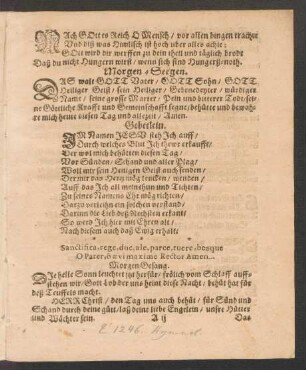 NAch GOttes Reich O Mensch / vor allen dingen trachte
Vnd diß was Himlisch ist hoch vber alles achte;
GOtt wird dir zuwerffen zu dem theil vnd täglich brodt
Daß du nicht Hungern wirst / wenn sich sind Hungerß/noth.
Morgen-Seegen.
DAS walt GOTT Vater / GOTT Sohn / GOTT
Heiliger Geist / sein Heiliger / würdigen
Name / seine grosse Marter / Pein vnd bitterer Todt/
Göttliche Krafft und Gemeinschafft segne/behüte vnd bewah-
re mich heute diesen Tag vnd allezeit / Amen.
Gebetlein.
IM Namen JESV steh Ich auff /
Durch welches Blut Ich thewr erkaufft/
Der wol mich behütten diesen Tag/
Vor Sünden/Schand vnd aller Plag/
Woll mir sein Heiligen Geist auch senden/
Der mir das Hertz mög / wenden /
Auff das Ich all mein thun vnd Tichten/
Zu seines Namens Ehr mög richten/
Darzu verleih ein solchen verstand/
Darinn die Lieb deß Nechsten erkant/
So werd Ich hier mit Ehren alt/
Nach diesem auch daß Ewig erhalt/
Sanctifica, rege, duc, ale, parce, tuere,
O Pater, ô ævi maxime Rector Amen.
Morgen Gesang.
DIe helle Sonn leuchtet jetzt herfür/ frölich vom Schlaff auff-
stehen wir/ Gott Lob der vns heint diese Nacht/ behüt hat für
deß Teuffels macht.
HERR Christ / den Tag vns auch behüt / für Sünd vnd
Schand durch deine güte/laß deine liebe Engelein / vnsre Hüter
vnd Wächter sein. A ij Das